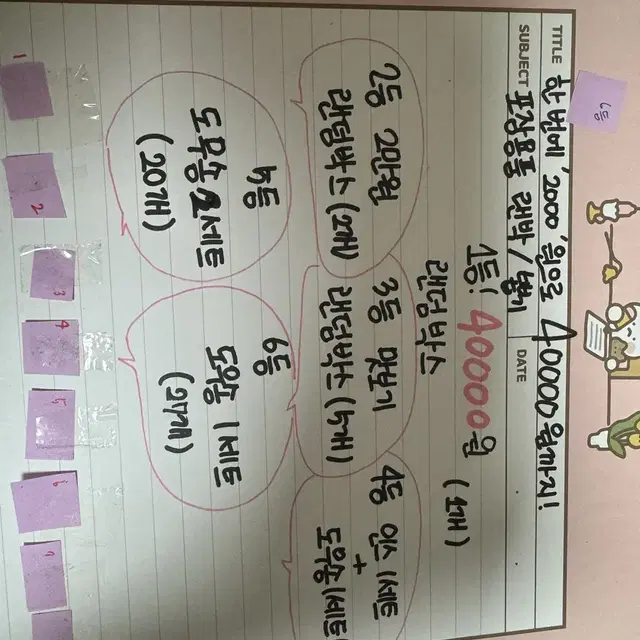 6등
TITLE 한 번에 '2000'원으로 40000원까지!
SUBJECT 포장용품 랜박/뽑기
DATE
1등! 40000원
랜덤박스
(1개)
2등 2만원
랜덤박스 (2개)
3등 맛보기
랜덤박스 (5개)
4등 인스 1세트
+
도무송 1세트
5등
도무송 2세트
(20개)
6등
도무송 1세트
(27개)
1
2
3
4
5
6